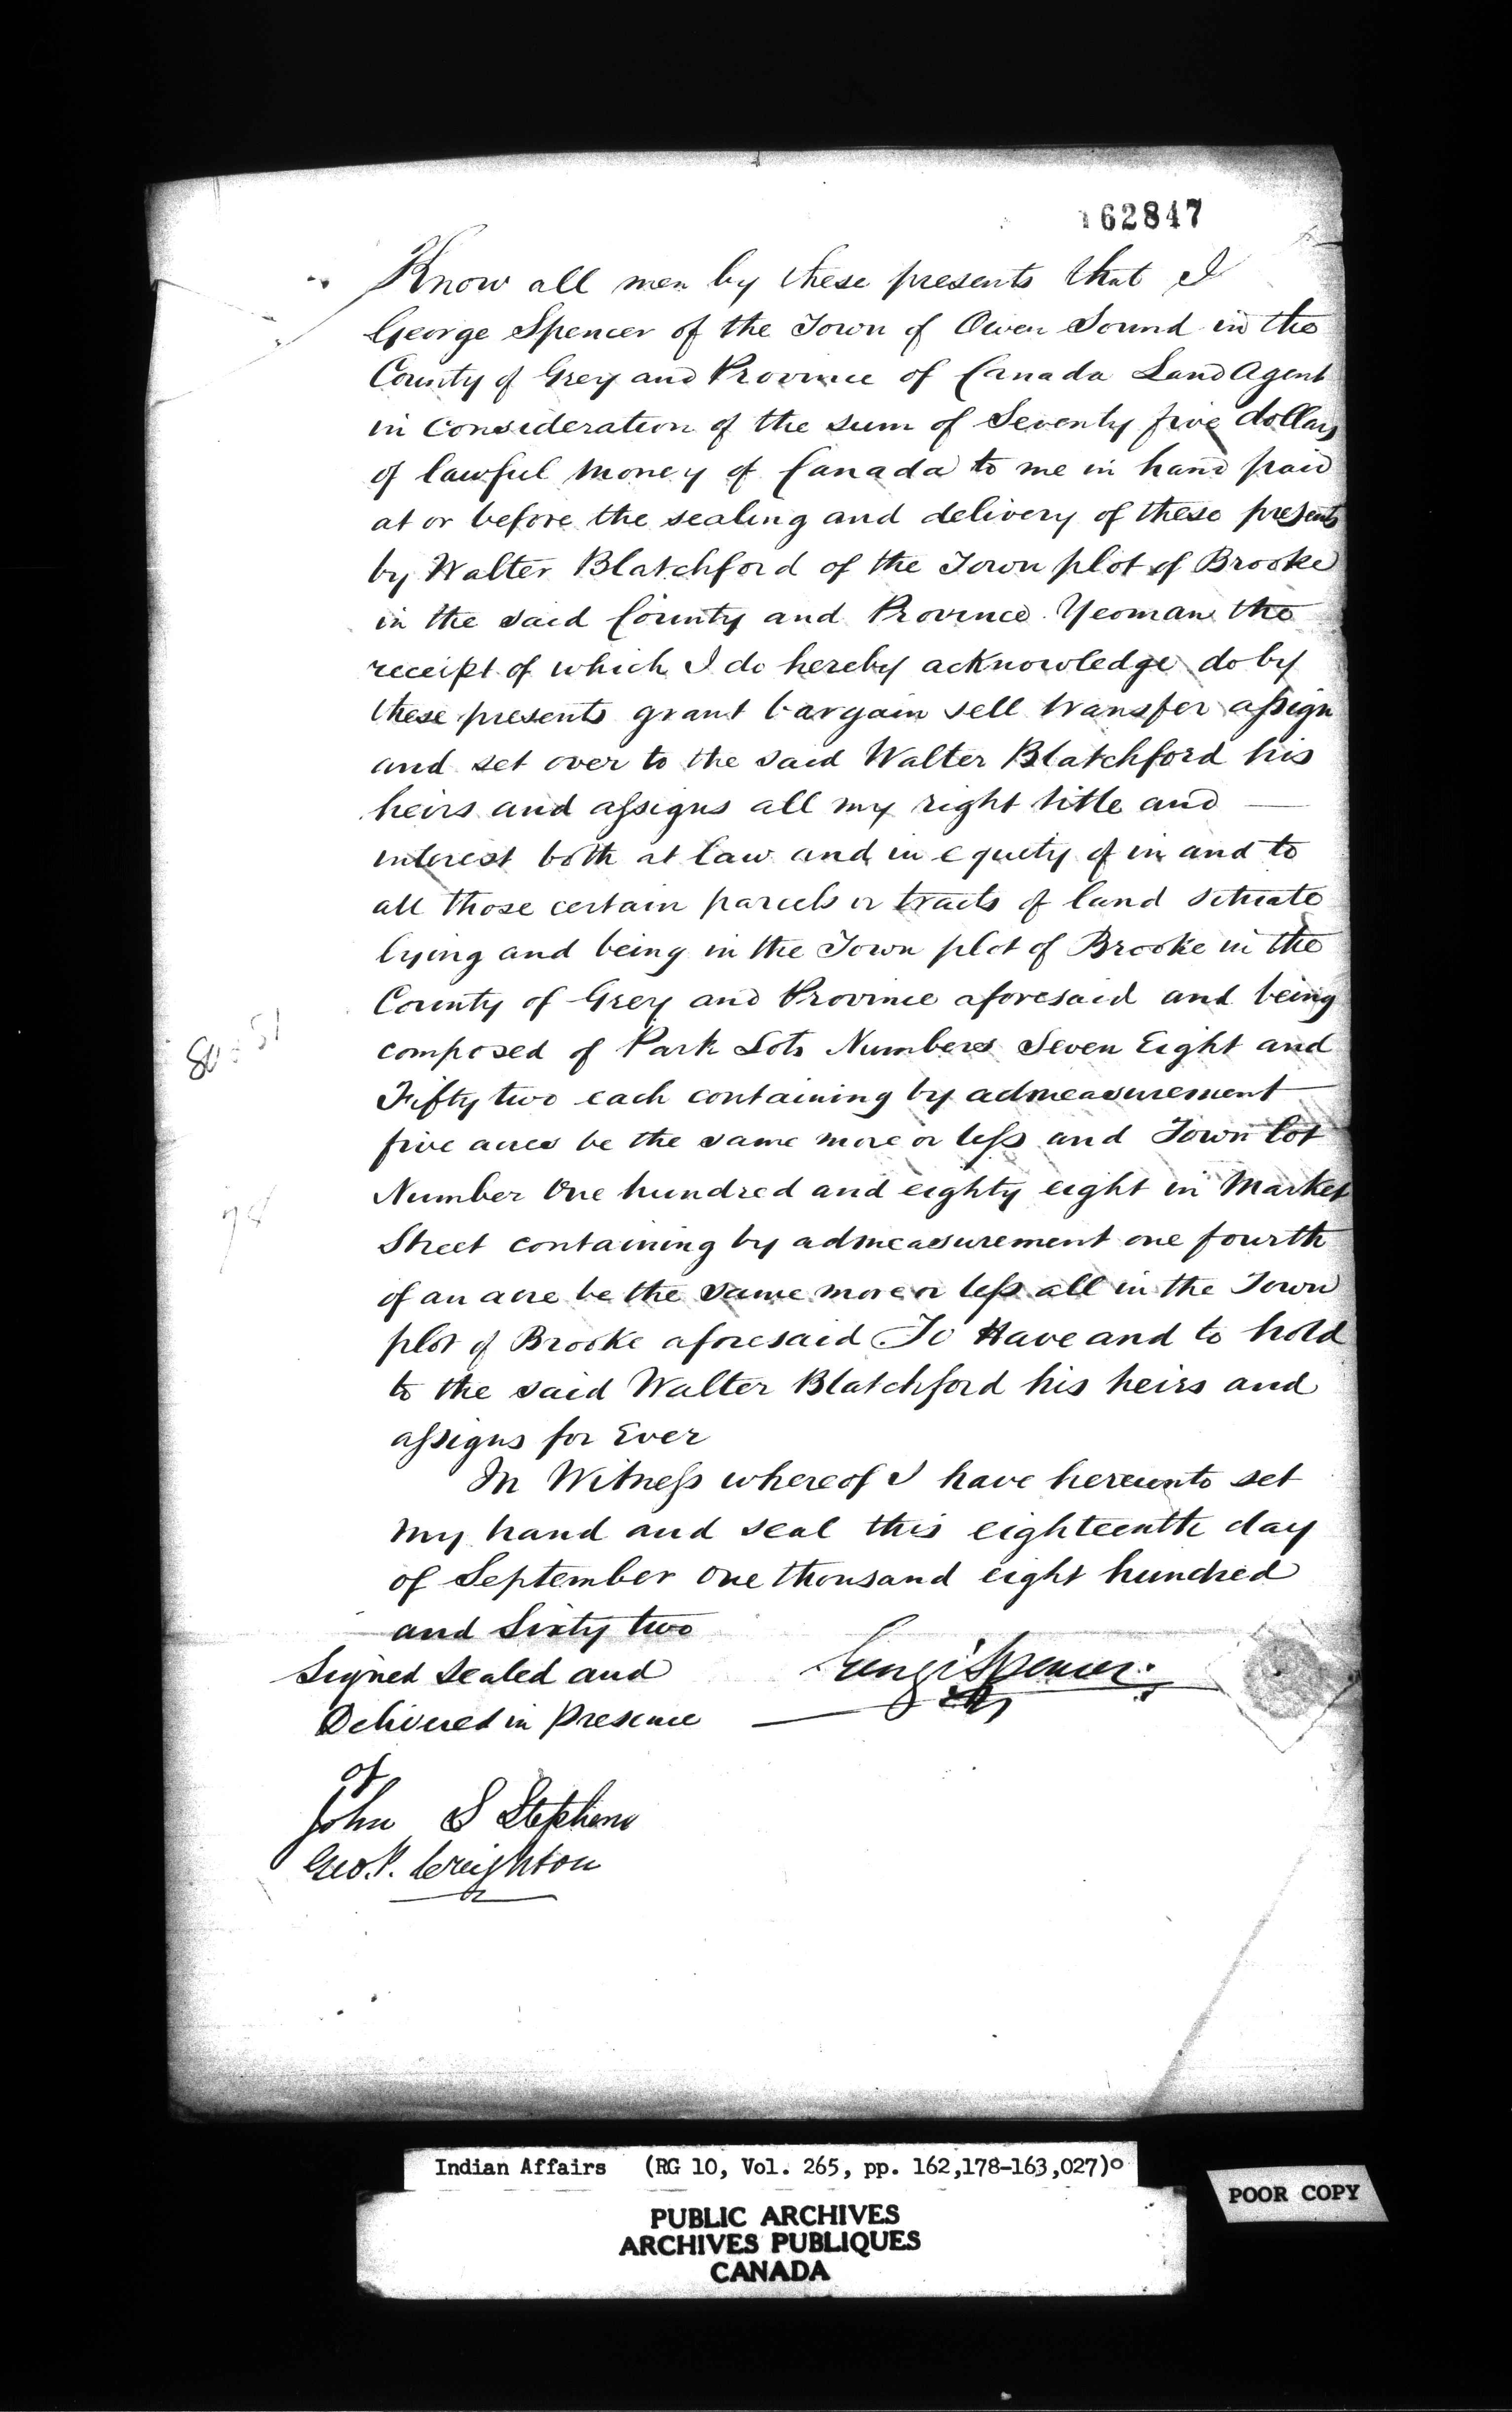 162847
Know all men by these presents that I
George Spencer of the Town of Owen Sound in the
County of Grey and Province of Canada Land Agent
in consideration of the sum of Seventy five dollars
of lawful money of Canada to me in hand paid
at or before the sealing and delivery of these presents
by Walter Blatchford of the Town plot of Brooke
in the said County and Province Yeoman the
receipt of which I do hereby acknowledge do by
these presents grant bargain sell transfer assign
and set over to the said Walter Blatchford his
heirs and assigns all my right title and
interest both at law and in equity of in and to
all those certain parcels or tracts of land situate
lying and being in the Town plot of Brooke in the
County of Grey and Province aforesaid and being
composed of Park Lots Numbers Seven Eight and
Fifty two each containing by admeasurement
five acres be the same more or less and Town lot
Number One hundred and eighty eight in Market
Street containing by admeasurement one fourth
of an acre be the same more or less all in the Town
plot of Brooke aforesaid To Have and to hold
to the said Walter Blatchford his heirs and
assigns for Ever
In Witness whereof I have hereunto set
my hand and seal this eighteenth day
of September One thousand eight hundred
and Sixty two
Signed Sealed and
Delivered in Presence
of
George Spencer
John S Stephens
Geo. P. Creighton
Indian Affairs (RG 10, Vol. 265, pp. 162,178-163,027)
PUBLIC ARCHIVES
ARCHIVES PUBLIQUES
CANADA
POOR COPY